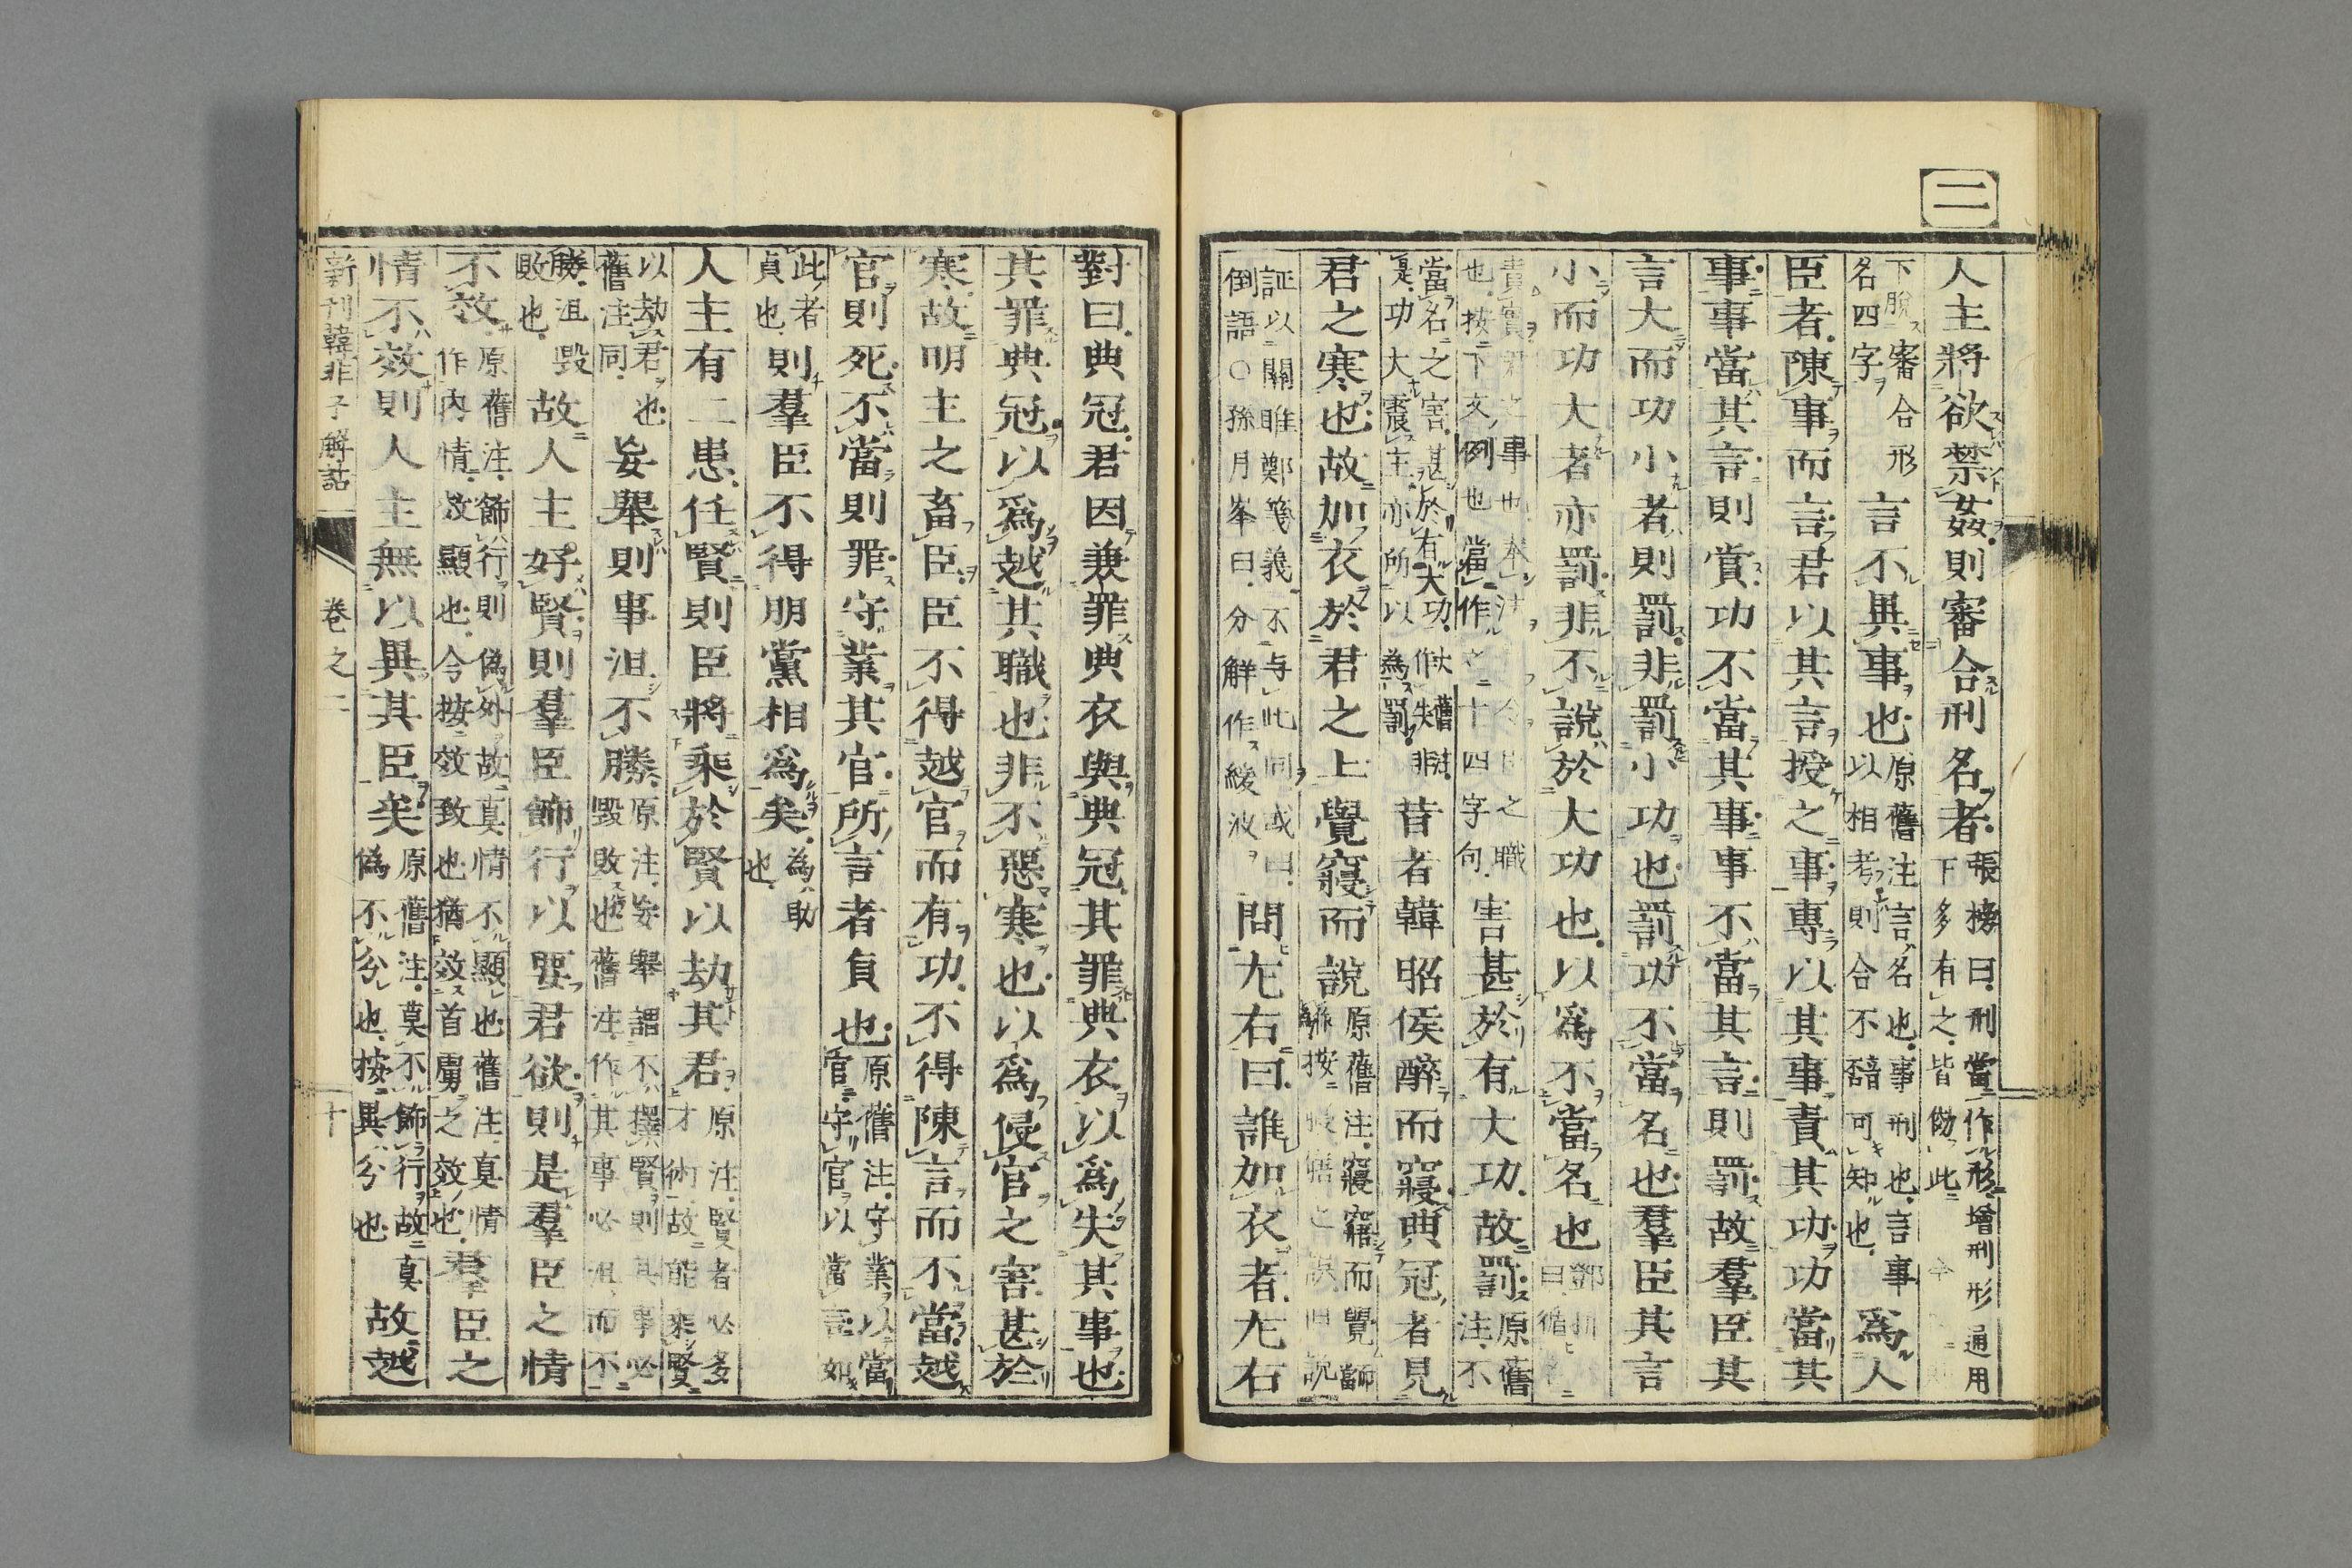 二
人主將欲禁姦則審合刑名者張榜曰刑當作形增刑形通用下多有之皆倣此
下脫審合形名四字言不異事也原舊注言名也事刑也言事以相考則合不可知也爲人
臣者陳事而言君以其言授之事專以其事責其功功當其
事事當其言則賞功不當其事事不當其言則罰故羣臣其
言大而功小者則罰非罰小功也罰功不當名也羣臣其言
小而功大者亦罰非不說於大功也以爲不當名也
也按下文例也當作之十四字句害甚於有大功故罰原舊注不
當名之害甚於有大功功大震主亦所以為罰昔者韓昭侯醉而寢典冠者見
君之寒也故加衣於君之上覺寢而說原舊注寢寤而覺
証以關雎鄭箋義不与此同或曰倒語○孫月峯曰分解作綾波問左右曰誰加衣者左右
對曰典冠君因兼罪典衣與典冠其罪典衣以爲失其事也
其罪典冠以爲越其職也非不惡寒也以爲侵官之害甚於
寒故明主之畜臣臣不得越官而有功不得陳言而不當越
官則死不當則罪守業其官所言者貞也原舊注守業以當官守官以當言如
此者貞也則羣臣不得朋黨相爲矣為助也
人主有二患任賢則臣將乘於賢以劫其君原注賢者必多才術故能乘賢
以劫君也舊注同妄舉則事沮不勝原注妄舉謂不擇賢則其事必毀敗也舊注作其事必沮而不
勝沮毀敗也故人主好賢則羣臣飾行以要君欲則是羣臣之情
不效原舊注飾行則偽外故真情不顯也舊注真情作內情效顯也今按效致也猶效首虜之效也羣臣之
情不效則人主無以異其臣矣原舊注莫不飾行故真偽不分也按異分也故越
新刊韓非子解詁　卷之二　十